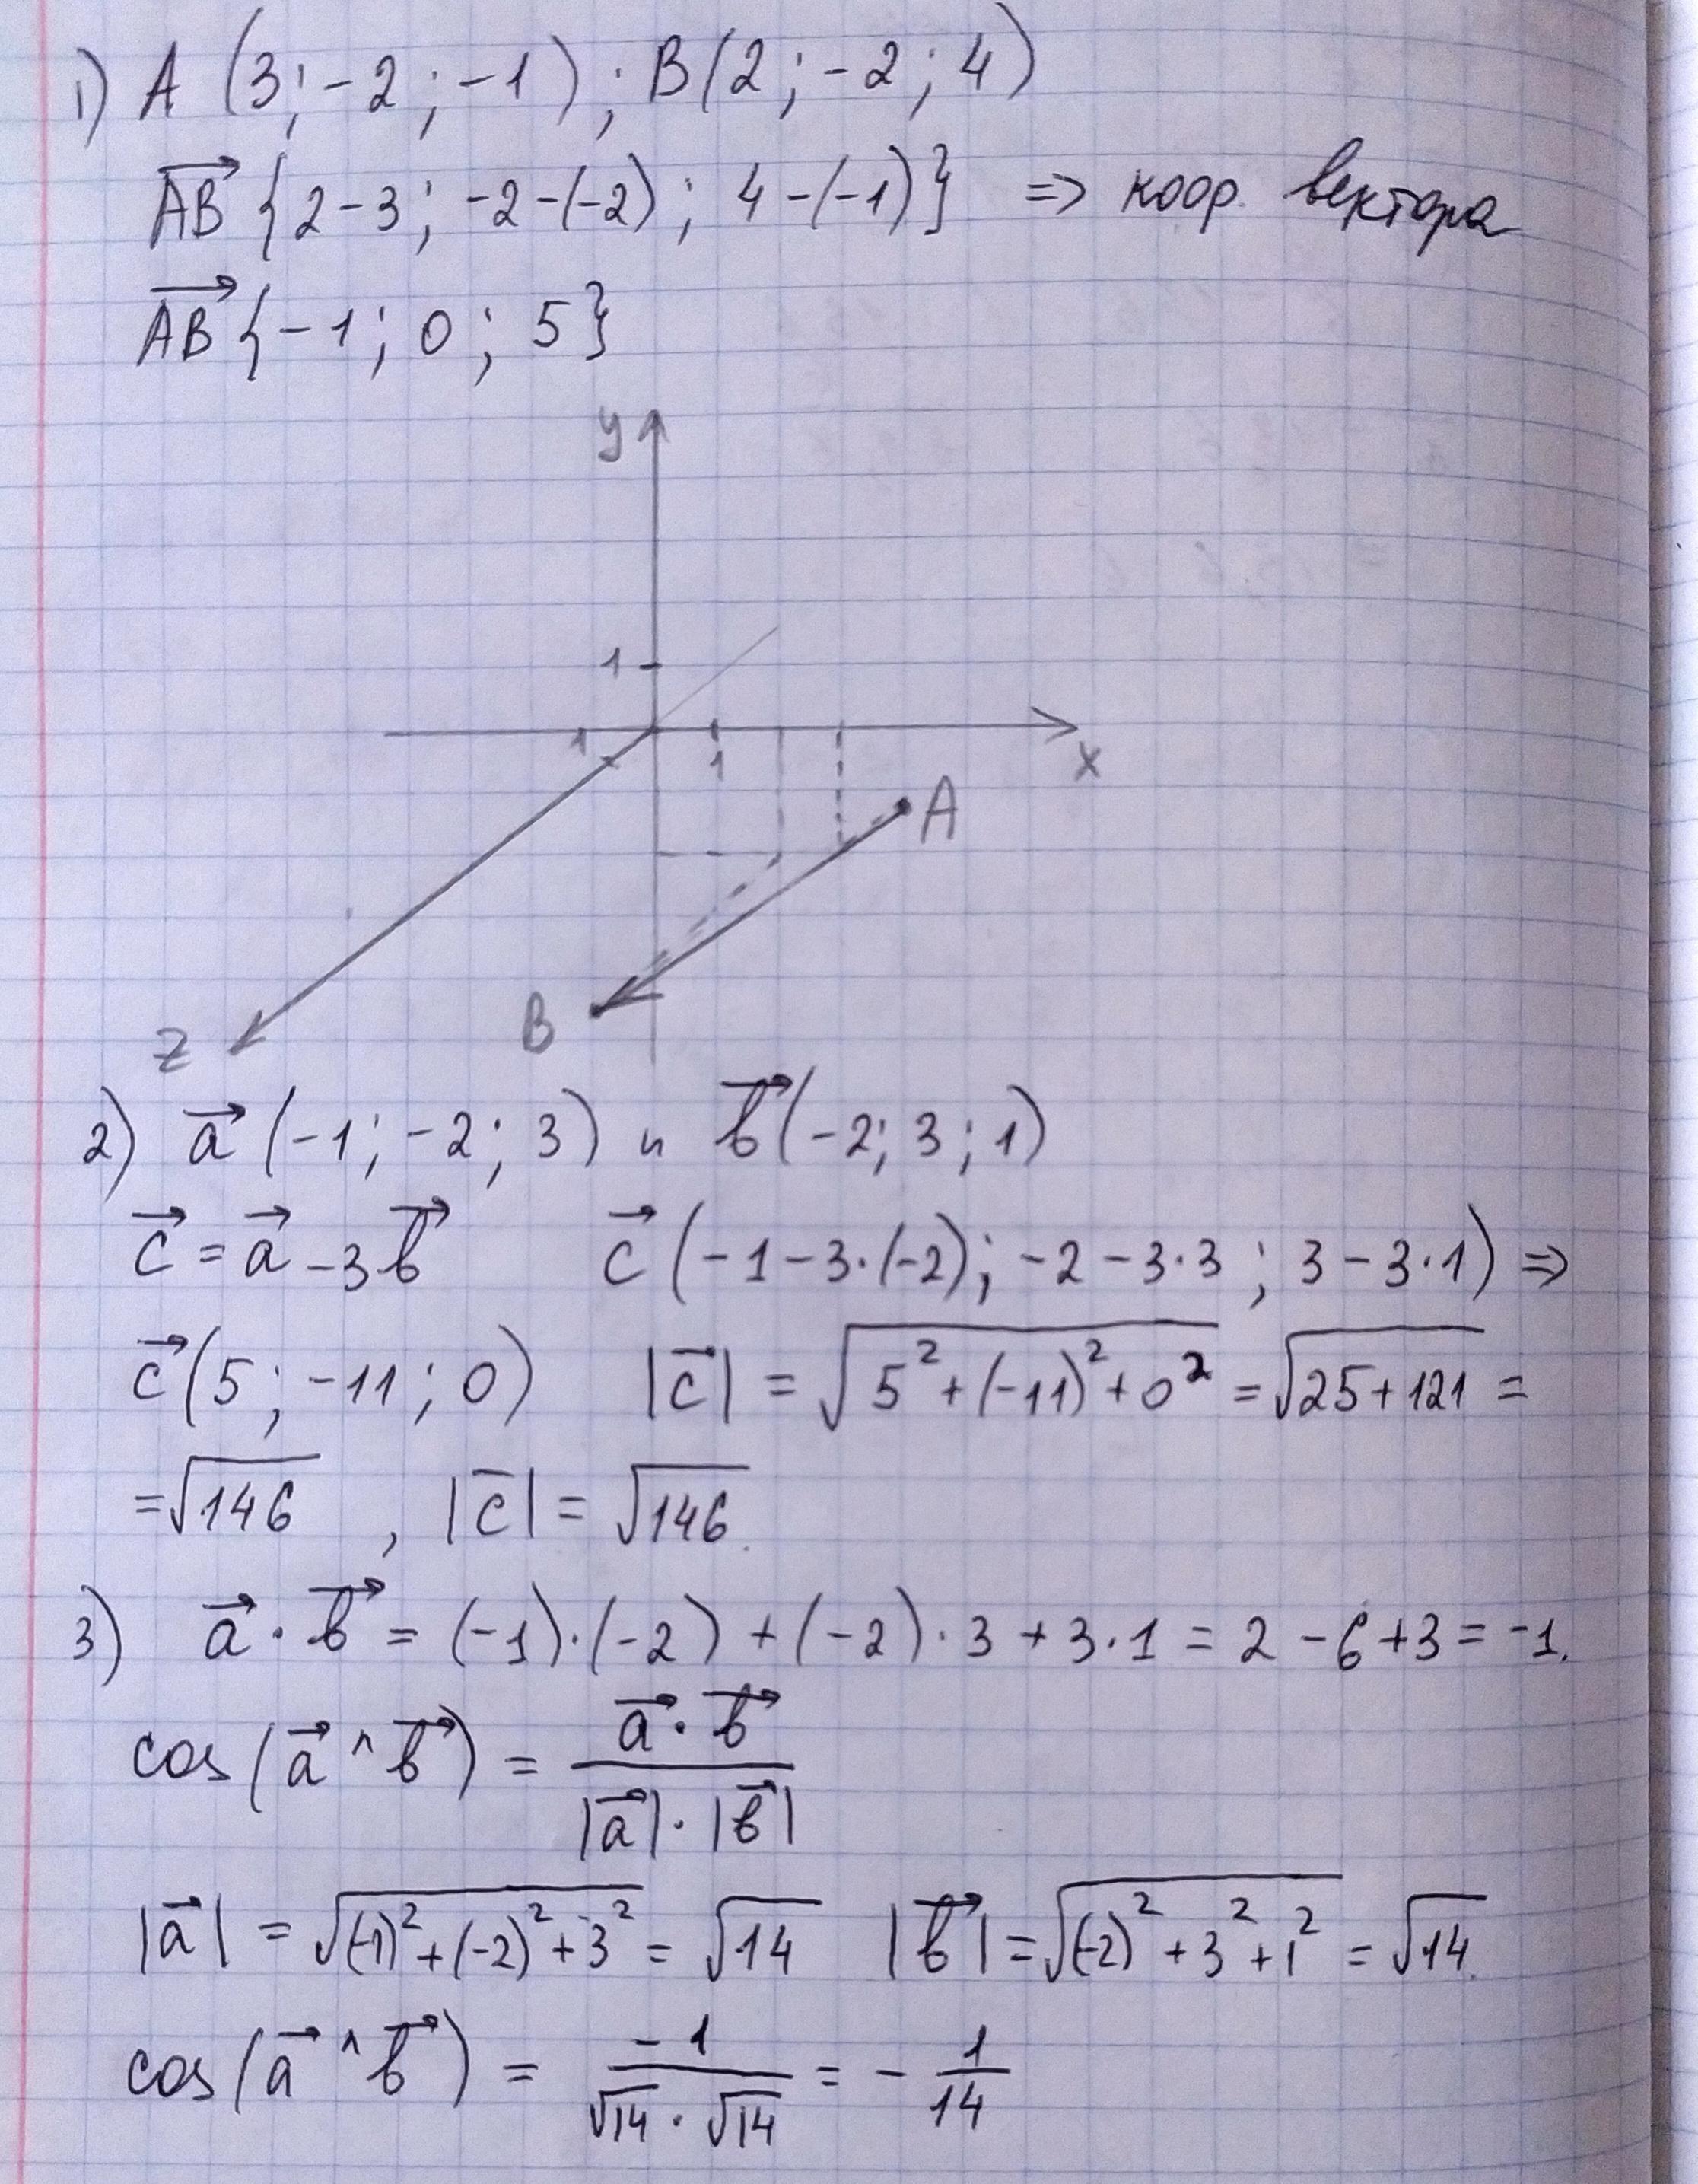 1) A (3; -2; -1); B(2; -2; 4)
AB→ {2-3; -2-(-2); 4-(-1)} => коор. вектора
AB→ {-1; 0; 5}
y
1
1 1 x
A
B
z
2) a→ (-1; -2; 3) и b→ (-2; 3; 1)
c→ = a→ - 3b→ c→ (-1-3·(-2); -2-3·3; 3-3·1) =>
c→ (5; -11; 0) |c→| = √(5²+(-11)²+0²) = √(25+121) =
= √146, |c̄| = √146.
3) a→ · b→ = (-1)·(-2) + (-2)·3 + 3·1 = 2 - 6 + 3 = -1.
cos(a→ ^ b→) = (a→ · b→) / (|a→| · |b→|)
|a→| = √((-1)²+(-2)²+3²) = √14 |b→| = √((-2)²+3²+1²) = √14.
cos(a→ ^ b→) = -1 / (√14 · √14) = - 1/14